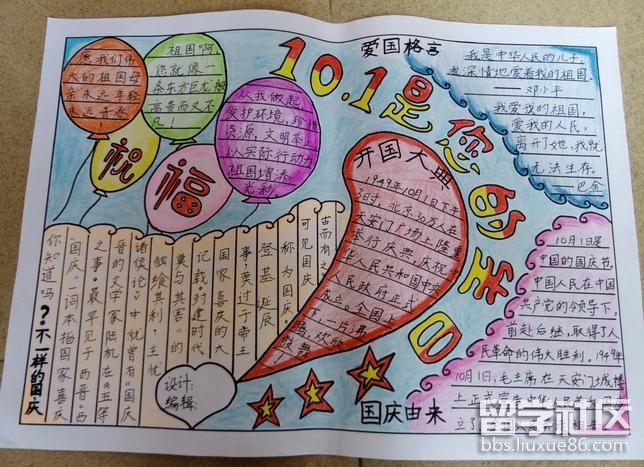 愿我们伟
大的祖国母
亲永远年轻
永远青春
!
祖国啊,
您就像一
条东方巨龙
高贵而又不
凡!
从我做起
爱护环境,珍惜
资源,文明
以实际行动为
祖国增添
光彩
祝
福
10.1是您的生日
爱国格言
我是中华人民的儿子,
我深情地爱着我的祖国.
——邓小平
我爱我的祖国,
爱我的人民,
离开了她,我就
无法生存.
——巴金
开国大典
1949年10月1日下午
3时,北京30万人在
天安门广场上隆重
举行庆典,庆祝中
华人民共和国中央
人民政府正式
成立。全国上
下,一片沸
腾,欢欣
鼓舞!
10月1日是
中国的国庆节。
中国人民在中国
共产党的领导下,
前赴后继,取得了人
民革命的伟大胜利。1949年
10月1日,毛主席在天安门城楼
上正式宣告中华人民共和国
立了
国庆由来
古而有之
可见国庆
称为国庆。
登基诞辰
事莫过于帝王
国家喜庆的大
记载封建时代
莫与其害”的
独飨其利,主忧
诸侯论》中就曾有“国庆
晋的文学家陆机在《五等
之事,最早见于西晋。西
“国庆”一词本指国家喜庆
你知道吗
?不一样的国庆
设计:
编辑:
留学社区
bbs.liuxue86.com